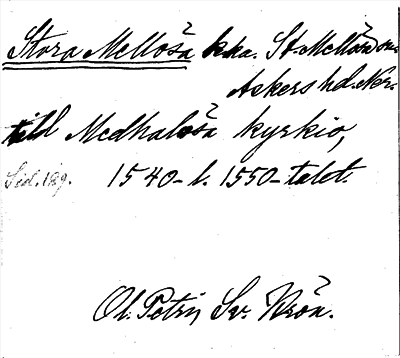 Stora Mellösa kka. St. Mellösa sn.
Askers hd. Nke.
till Medhalösa kyrkio,
Sid. 189. 1540- l. 1550-talet.
Ol. Petri, Sv. Krön.